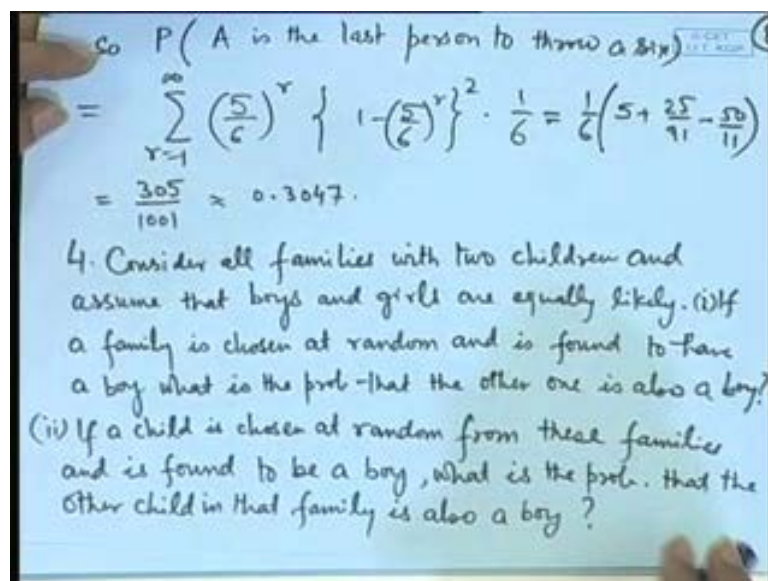 So P( A is the last person to throw a six)
= ∞ Σ r=1 (5/6)^r { 1-(5/6)^r }^2 . 1/6 = 1/6 (5+ 25/91 - 50/11)
= 305/1001 ≈ 0.3047.
4. Consider all families with two children and
assume that boys and girls are equally likely. (i) If
a family is chosen at random and is found to have
a boy what is the prob that the other one is also a boy?
(ii) If a child is chosen at random from these families
and is found to be a boy, what is the prob. that the
other child in that family is also a boy ?